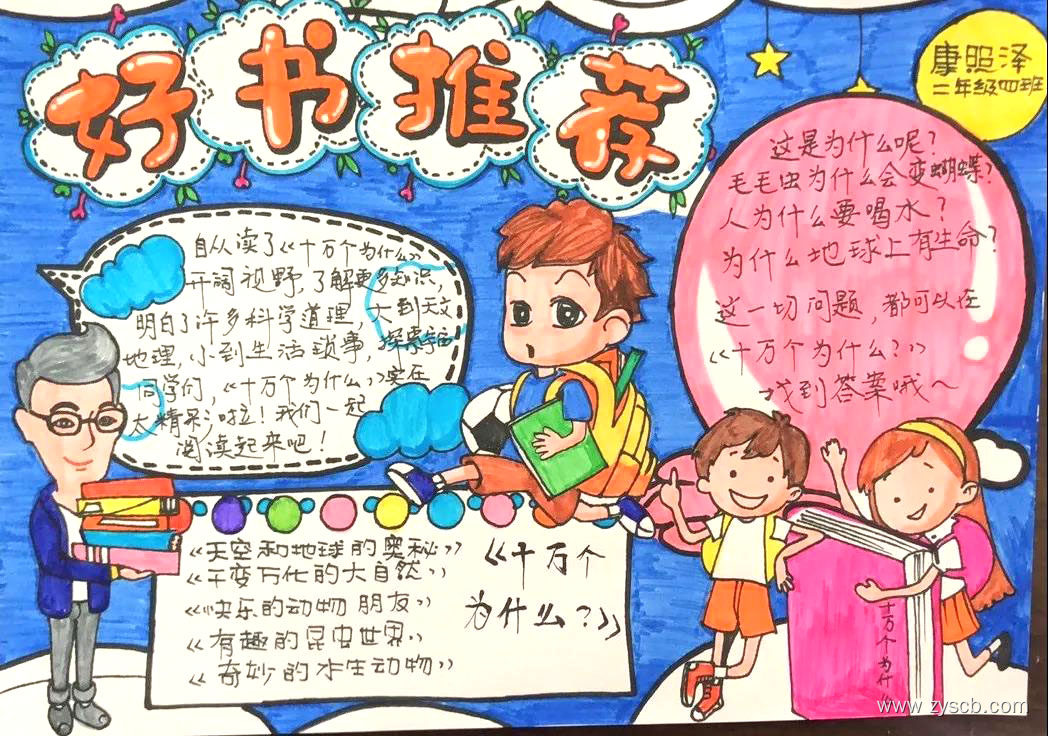 好书推荐
康照泽
二年级四班
自从读了《十万个为什么》
开阔视野，了解更多知识，
明白了许多科学道理，大到天文
地理，小到生活琐事，探索宇宙
同学们，《十万个为什么》实在
太精彩啦！我们一起
阅读起来吧！
这是为什么呢？
毛毛虫为什么会变蝴蝶？
人为什么要喝水？
为什么地球上有生命？
这一切问题，都可以在
《十万个为什么？》
找到答案哦～
《天空和地球的奥秘》
《千变万化的大自然》
《快乐的动物朋友》
《有趣的昆虫世界》
《奇妙的水生动物》
《十万个
为什么？》
十万个为什
www.zyscb.com